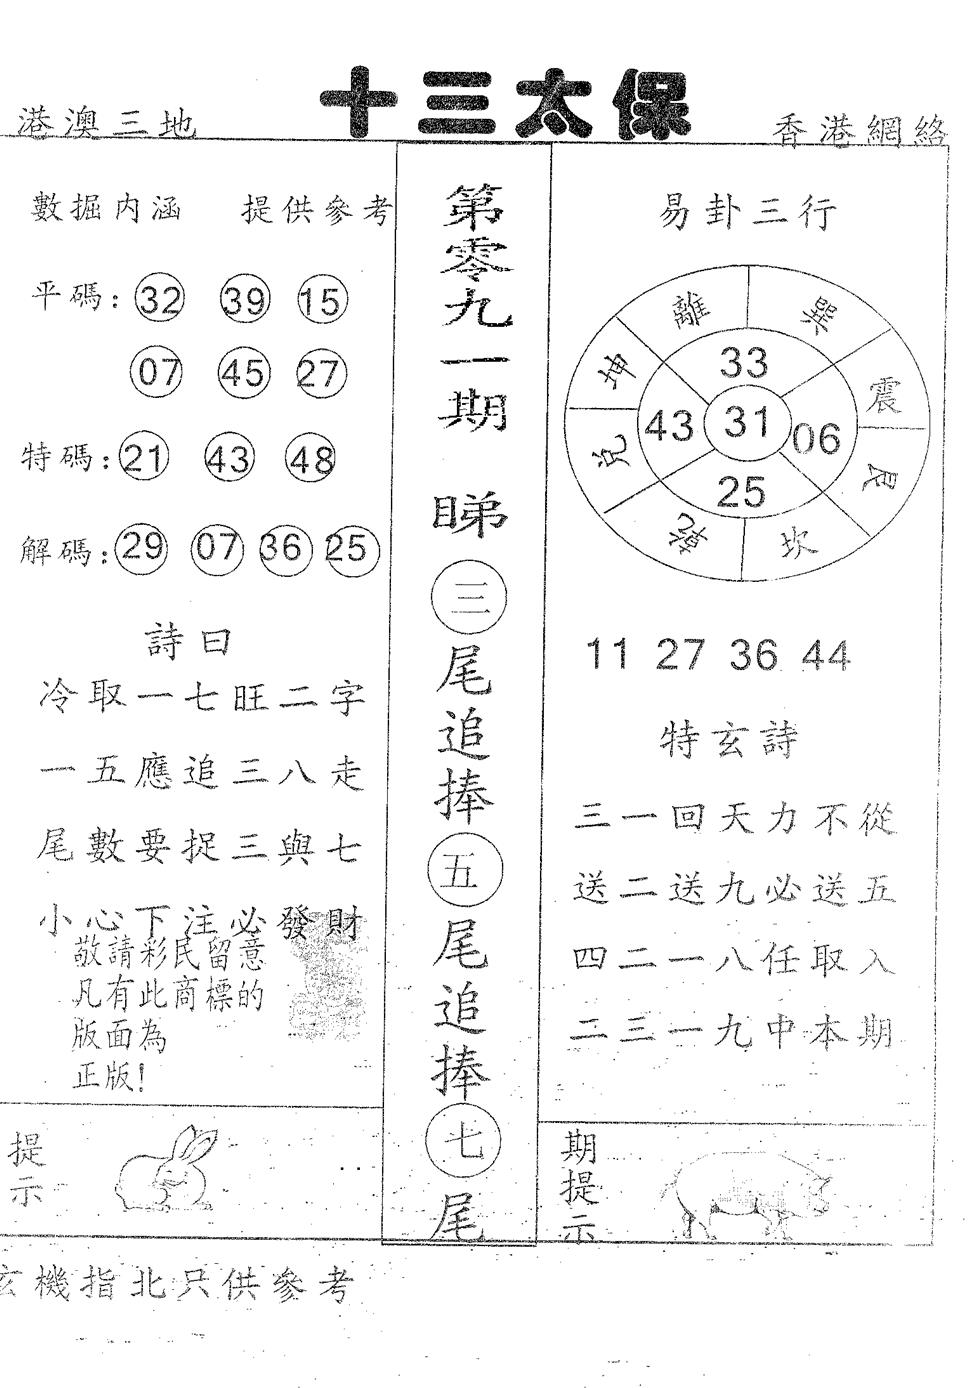 十三太保
港澳三地
香港網絡
數掘内涵 提供參考
平碼: 32 39 15
07 45 27
特碼: 21 43 48
解碼: 29 07 36 25
詩曰
冷取一七旺二字
一五應追三八走
尾數要捉三與七
小心下注必發財
敬請彩民留意
凡有此商標的
版面為
正版!
提示
第零九一期
睇三尾追捧五尾追捧七尾
易卦三行
離 巽
坤 震
兌 艮
乾 坎
33
43 31 06
25
11 27 36 44
特玄詩
三一回天力不從
送二送九必送五
四二一八任取入
二三一九中本期
期提示
玄機指北只供參考